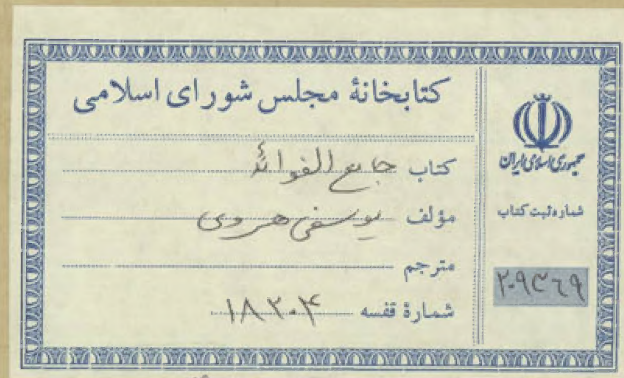 کتابخانهٔ مجلس شورای اسلامی
کتاب جامع الفوائد
مؤلف یوسفی هروی
مترجم
شمارهٔ قفسه ۱۸۲۰۴
جمهوری اسلامی ایران
شماره ثبت کتاب
۲۰۹۳۶۹